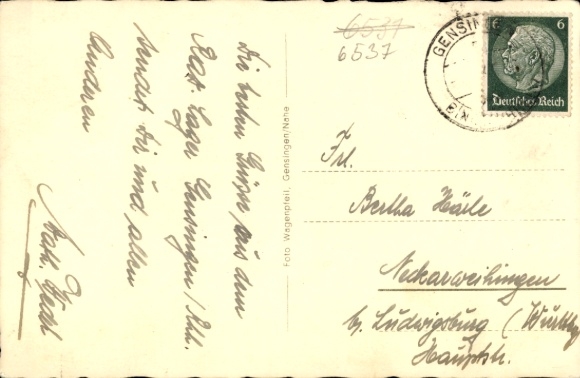 6537
6537
Die besten Grüße aus dem
Lager Gensingen
sendet Dir und allen
anderen
Foto Wagenpfeil, Gensingen/Nahe
GENSINGEN
6 6
Deutsches Reich
Frl.
Bertha Härle
Neckarweihingen
b/ Ludwigsburg (Württbg
Hauptstr.